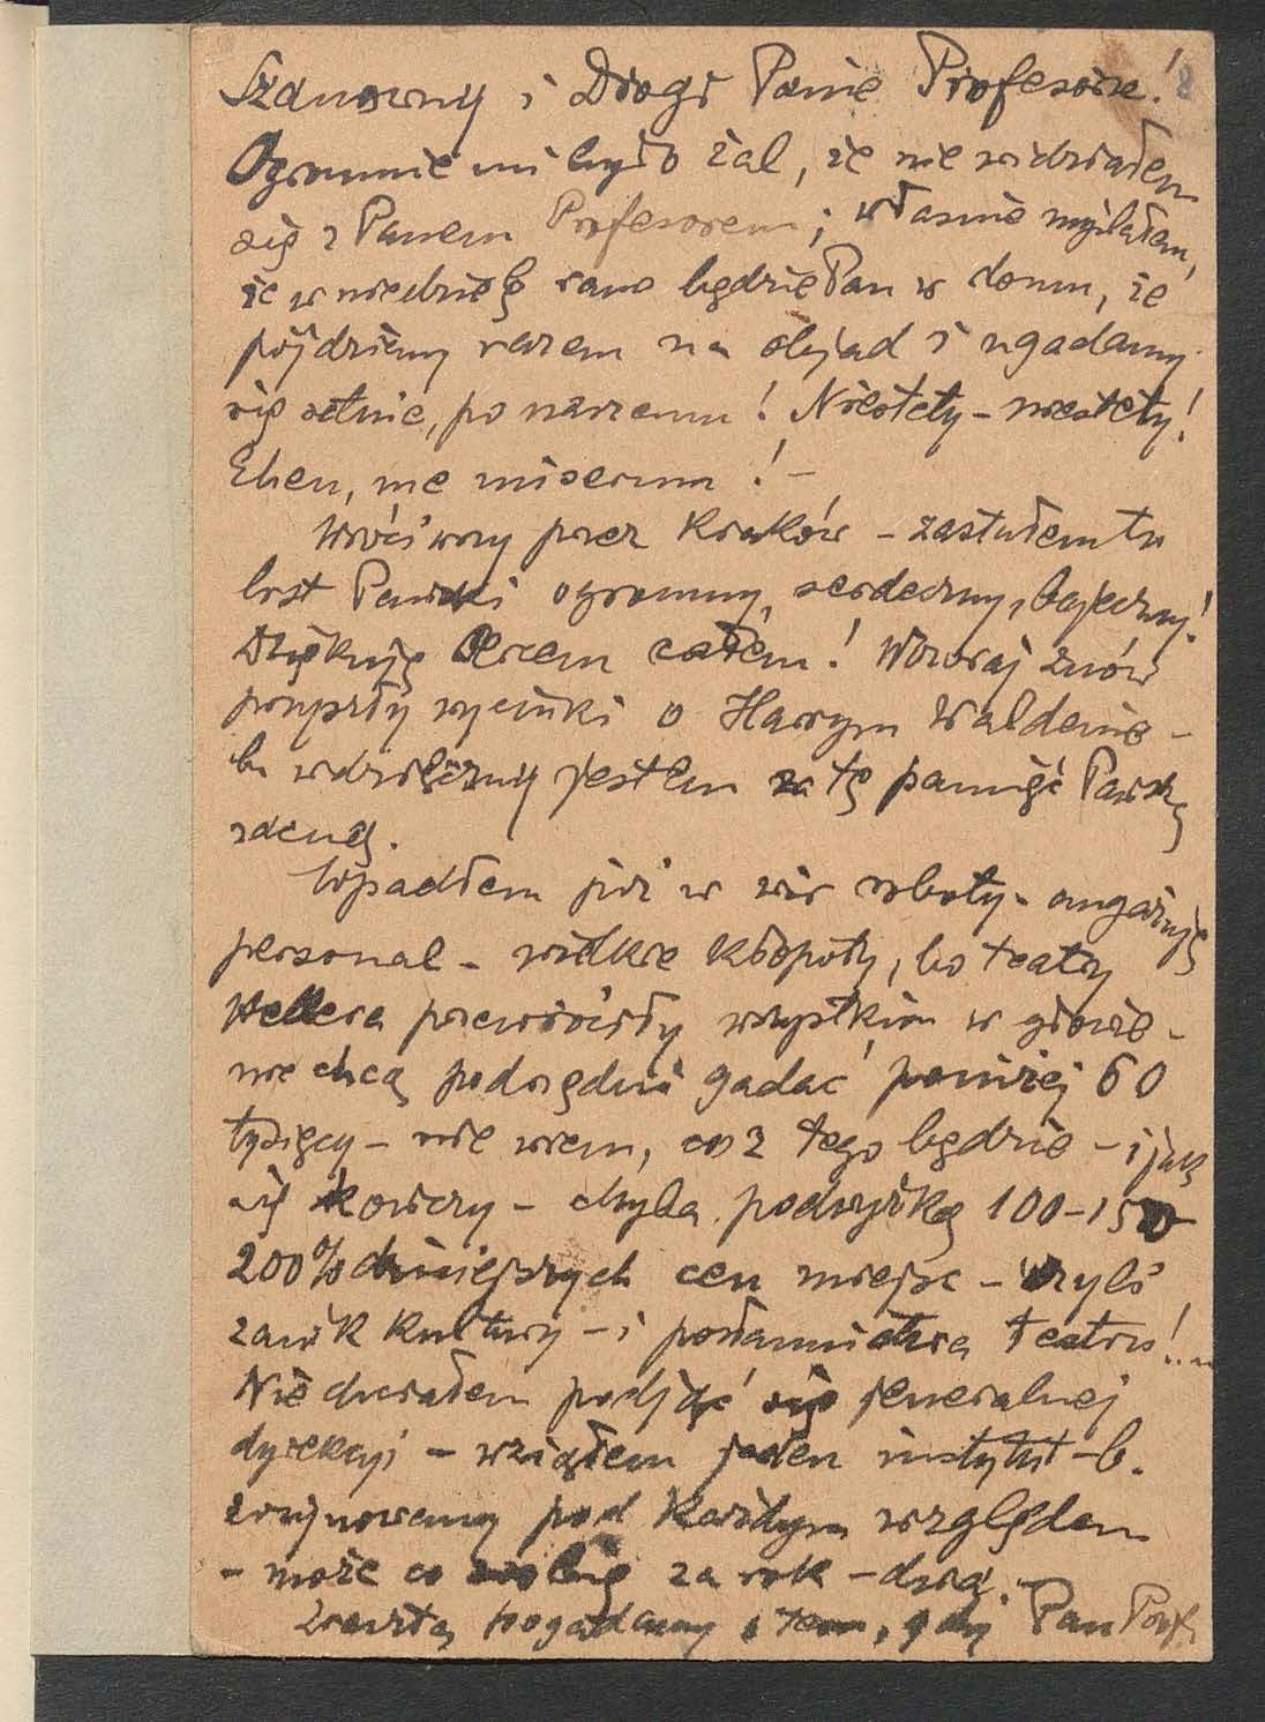 Szanowny i Drogi Panie Profesorze! 8
Ogromnie mi było żal, że nie widziałem
się z Panem Profesorem; właśnie myślałem,
że w niedzielę rano będzie Pan w domu, że
pójdziemy razem na obiad i ugadamy
się setnie, po naszemu! Niestety – niestety!
Eheu, me miserum! –
Wróciwszy przez Kraków – zastałem tu
list Pański ogromny, serdeczny, bajeczny!
Dziękuję Sercem całem! Wczoraj znów
przyszły wycinki o Harrym Waldenie –
b. wdzięczny jestem za tę pamięć Pańską
zacną.
Wpadłem już w wir roboty – angażuję
personal – wielkie kłopoty, bo teatry
Hellera przewróciły wszystkim w głowie –
nie chcą podrzędni gadać poniżej 60
tysięcy – nie wiem, co z tego będzie – i jak
się skończy – chyba podwyżką 100–150
200% dzisiejszych cen miejsc – czyli
zanik kultury – i posłannictwa teatru!...
Nie chciałem podjąć się jeneralnej
dyrekcji – wziąłem jeden instytut – b.
zrujnowany pod każdym względem
– może co zrobię za rok – dwa. –
Zresztą pogadamy o tem, gdy Pan Prof.